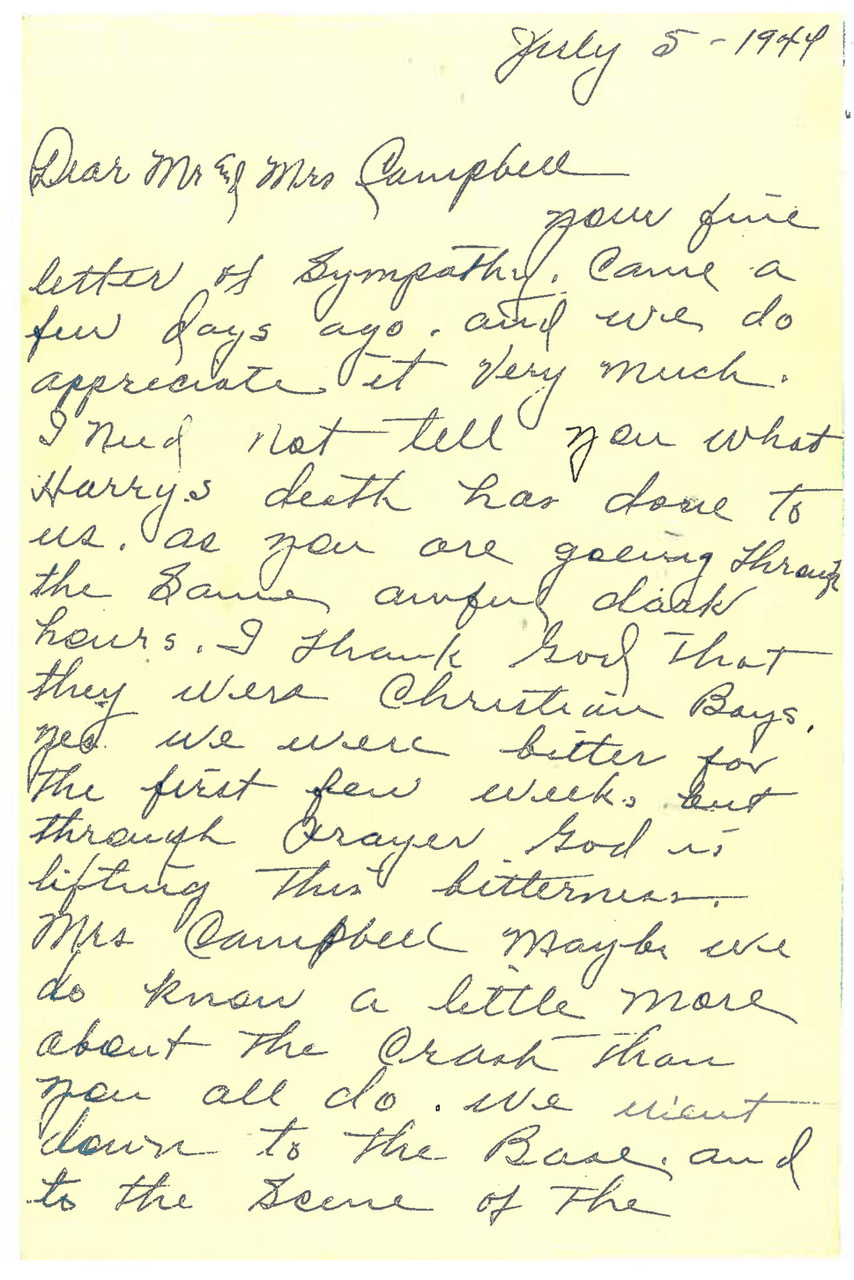 July 5 - 1944
Dear Mr and Mrs Campbell
your fine
letter of Sympathy. Came a
few days ago. and we do
appreciate it Very much.
I need not tell you what
Harry.s death has done to
us. as you are goeing through
the Same awful dark
hours. I thank God that
they were Christian Boys.
yes we were bitter for
the first few weeks. but
through Prayer God is
lifting this bitterness.
Mrs Campbell Maybe we
do know a little more
about the Crash than
you all do. we went
down to the Base. and
to the Scene of the